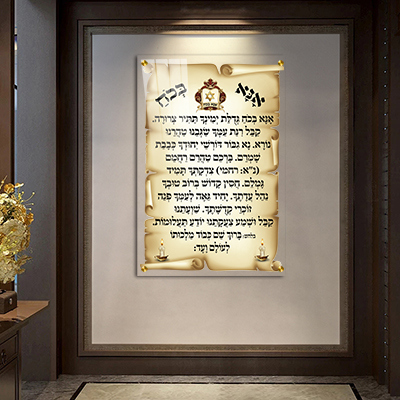 אנא בכח
אָנָּא בְּכֹחַ גְּדֻלַּת יְמִינְךָ תַּתִּיר צְרוּרָה.
קַבֵּל רִנַּת עַמְּךָ שַׂגְּבֵנוּ טַהֲרֵנוּ
נוֹרָא. נָא גִבּוֹר דּוֹרְשֵׁי יִחוּדְךָ כְּבָבַת
שָׁמְרֵם. בָּרְכֵם טַהֲרֵם רַחֲמֵם
(נ"א: רחמי) צִדְקָתְךָ תָּמִיד
גָּמְלֵם. חֲסִין קָדוֹשׁ בְּרוֹב טוּבְךָ
נַהֵל עֲדָתֶךָ. יָחִיד גֵּאֶה לְעַמְּךָ פְּנֵה
זוֹכְרֵי קְדֻשָּׁתֶךָ. שַׁוְעָתֵנוּ
קַבֵּל וּשְׁמַע צַעֲקָתֵנוּ יוֹדֵעַ תַּעֲלוּמוֹת.
בלחש: בָּרוּךְ שֵׁם כְּבוֹד מַלְכוּתוֹ
לְעוֹלָם וָעֶד: